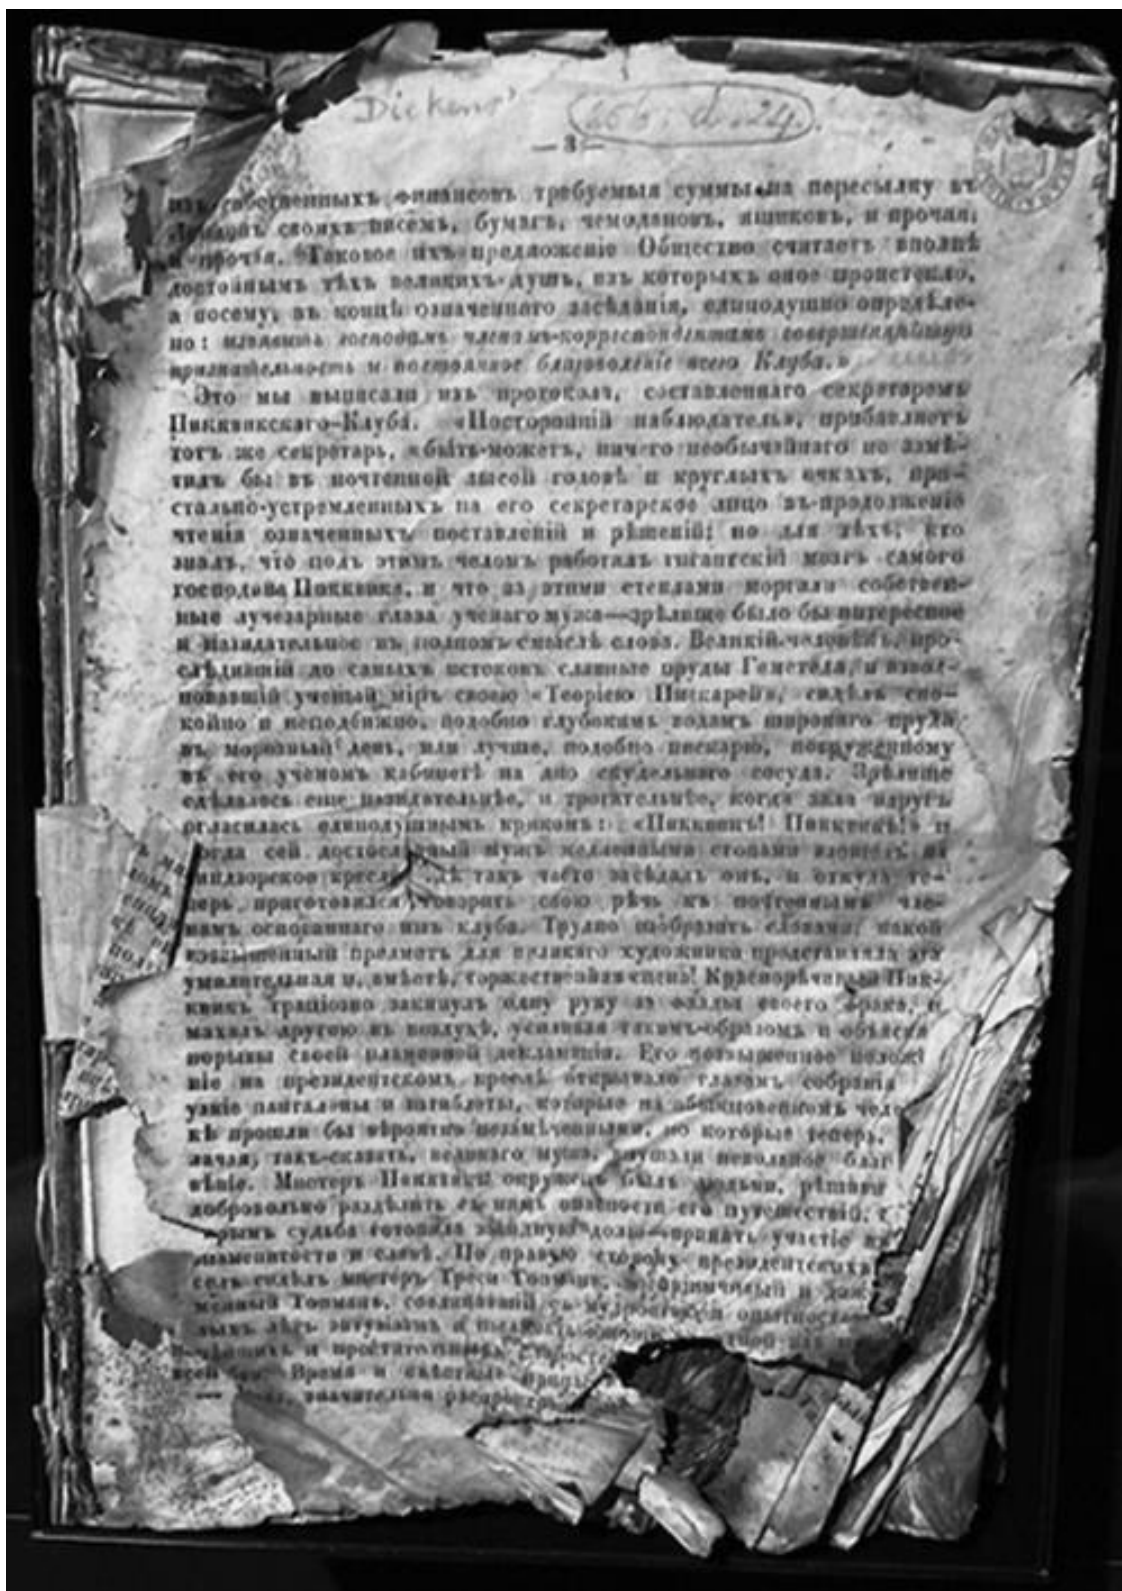 Dickens'
— 3 —
изъ собственныхъ финансовъ требуемыя суммы на пересылку въ
Лондонъ своихъ писемъ, бумагъ, чемодановъ, ящиковъ, и прочая,
и прочая. Таковое ихъ предложеніе Общество считаетъ вполнѣ
достойнымъ тѣхъ великихъ душъ, изъ которыхъ оное проистекло,
а посему, въ концѣ означеннаго засѣданія, единодушно опредѣле-
но: изъявить господамъ членамъ-корреспондентамъ совершеннѣйшую
признательность и постоянное благоволеніе всего Клуба.»
Это мы выписали изъ протокола, составленнаго секретаремъ
Пикквикскаго-Клуба. «Посторонній наблюдатель», прибавляетъ
тотъ же секретарь, «быть-можетъ, ничего необычайнаго не замѣ-
тилъ бы въ почтенной лысой головѣ и круглыхъ очкахъ, при-
стально-устремленныхъ на его секретарское лицо въ-продолженіе
чтенія означенныхъ поставленій и рѣшеній; но для тѣхъ, кто
зналъ, что подъ этимъ челомъ работалъ гигантскій мозгъ самого
господина Пикквика, и что за этими стеклами моргали собствен-
ные лучезарные глаза ученаго мужа—зрѣлище было бы интересное
и назидательное въ полномъ смыслѣ слова. Великій-человѣкъ, про-
слѣдившій до самыхъ истоковъ славные пруды Гемстеда, и взвол-
новавшій ученый міръ своею «Теоріею Пискарей», сидѣлъ спо-
койно и неподвижно, подобно глубокимъ водамъ широкаго пруда
въ морозный день, или лучше, подобно пискарю, погруженному
въ его ученомъ кабинетѣ на дно скудельнаго сосуда. Зрѣлище
сдѣлалось еще назидательнѣе, и трогательнѣе, когда зала вдругъ
огласилась единодушнымъ крикомъ: «Пикквикъ! Пикквикъ!» и
когда сей достославный мужъ медленными стопами взошелъ на
виндзорское кресло, гдѣ такъ часто засѣдалъ онъ, и откуда те-
перь приготовился говорить свою рѣчь къ почтеннымъ чле-
намъ основаннаго имъ клуба. Трудно изобразить словами, какой
возвышенный предметъ для великаго художника представляла эта
умилительная и, вмѣстѣ, торжественная сцена! Краснорѣчивый Пик-
квикъ граціозно закинулъ одну руку за фалды своего фрака, и
махалъ другою въ воздухѣ, усиливая такимъ-образомъ и объясняя
порывы своей пламенной декламаціи. Его возвышенное
ніе на президентскомъ креслѣ открывало глазамъ собранія
узкіе панталоны и штиблеты, которые на обыкновенномъ
кѣ прошли бы вѣроятно незамѣченными, но которые теперь,
такъ-сказать, великаго мужа, внушали невольное
Мистеръ Пикквикъ окруженъ былъ людьми,
добровольно раздѣлить съ нимъ опасности его путешествій,
судьба готовила завидную долю—принять участіе въ
знаменитости и славѣ. По правую сторону
сидѣлъ мистеръ Треси Топманъ,
Топманъ, соединявшій съ мудростью и опытностью
лѣтъ энтузіазмъ и
Время и
значительно